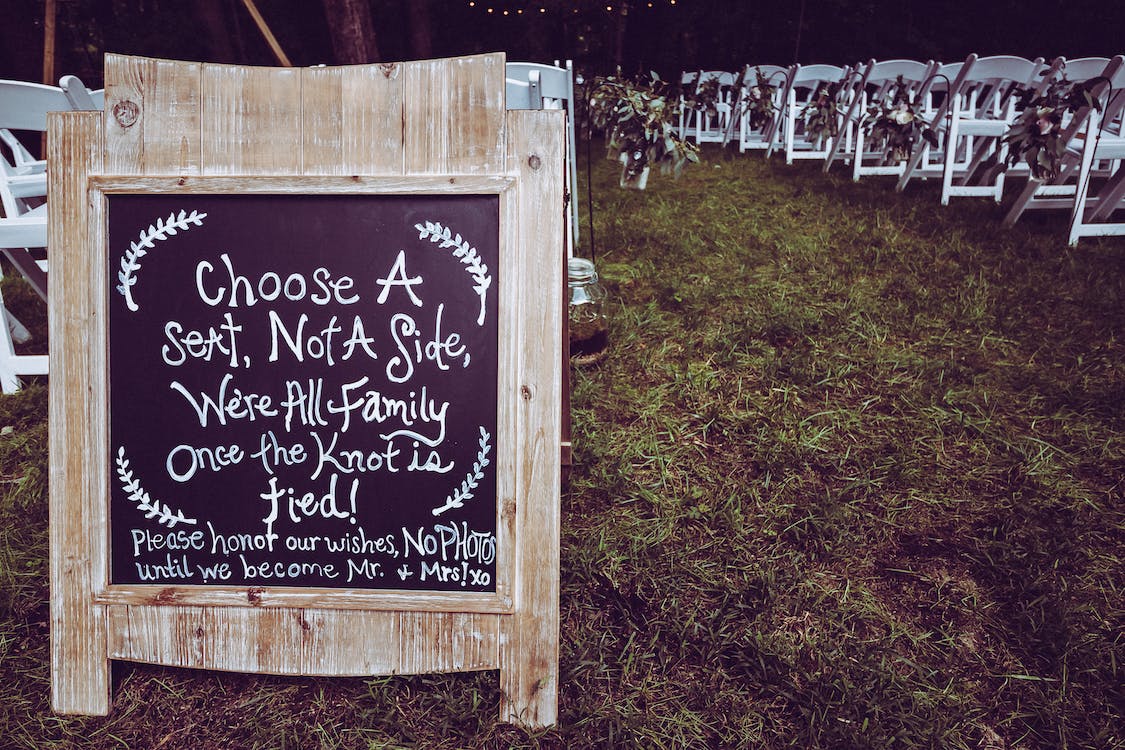 Choose A
Seat, Not A Side,
We're All Family
Once the Knot is
tied!
Please honor our wishes, NO PHOTOS
until we become Mr. & Mrs! xo